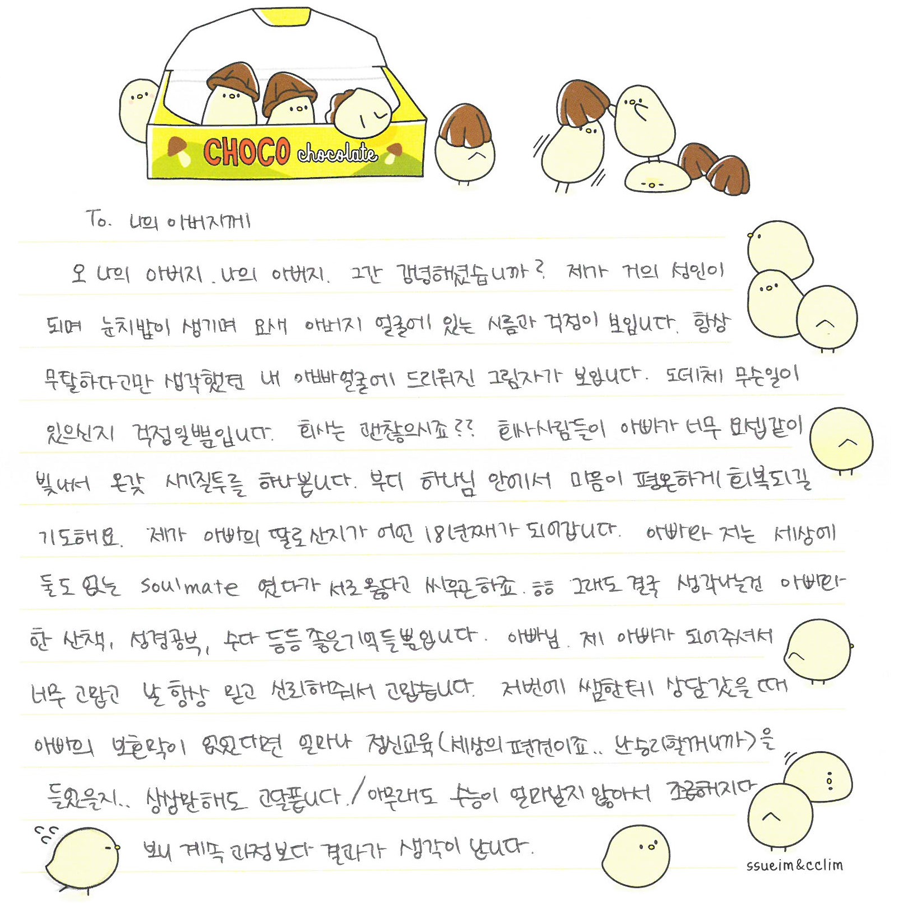 CHOCO chocolate
To. 나의 아버지께
오 나의 아버지. 나의 아버지. 그간 강녕해셨습니까? 제가 거의 성인이
되며 눈치밥이 생기며 요새 아버지 얼굴에 있는 시름과 걱정이 보입니다. 항상
무탈하다고만 생각했던 내 아빠얼굴에 드리워진 그림자가 보입니다. 도데체 무슨일이
있으신지 걱정일뿐입니다. 회사는 괜찮으시죠?? 회사사람들이 아빠가 너무 요셉같이
빛나서 온갖 시기질투를 하나봅니다. 부디 하나님 안에서 마음이 평온하게 회복되길
기도해요. 제가 아빠의 딸로산지가 어언 18년째가 되어갑니다. 아빠와 저는 세상에
둘도 없는 soulmate 였다가 서로 옳다고 싸우곤하죠. ㅎㅎ 그래도 결국 생각나는건 아빠와
한 산책, 성경공부, 수다 등등 좋은기억들뿐입니다. 아빠님. 제 아빠가 되어주셔서
너무 고맙고 날 항상 믿고 신뢰해줘서 고맙습니다. 저번에 쌤한테 상담갔을때
아빠의 보호막이 없었다면 얼마나 정신교육(세상의 편견이죠.. 난 승리할꺼니까)을
들었을지.. 상상만해도 고달픕니다./아무래도 수능이 얼마남지 않아서 조급해지다
보니 계속 과정보다 결과가 생각이 납니다.
ssueim&cclim